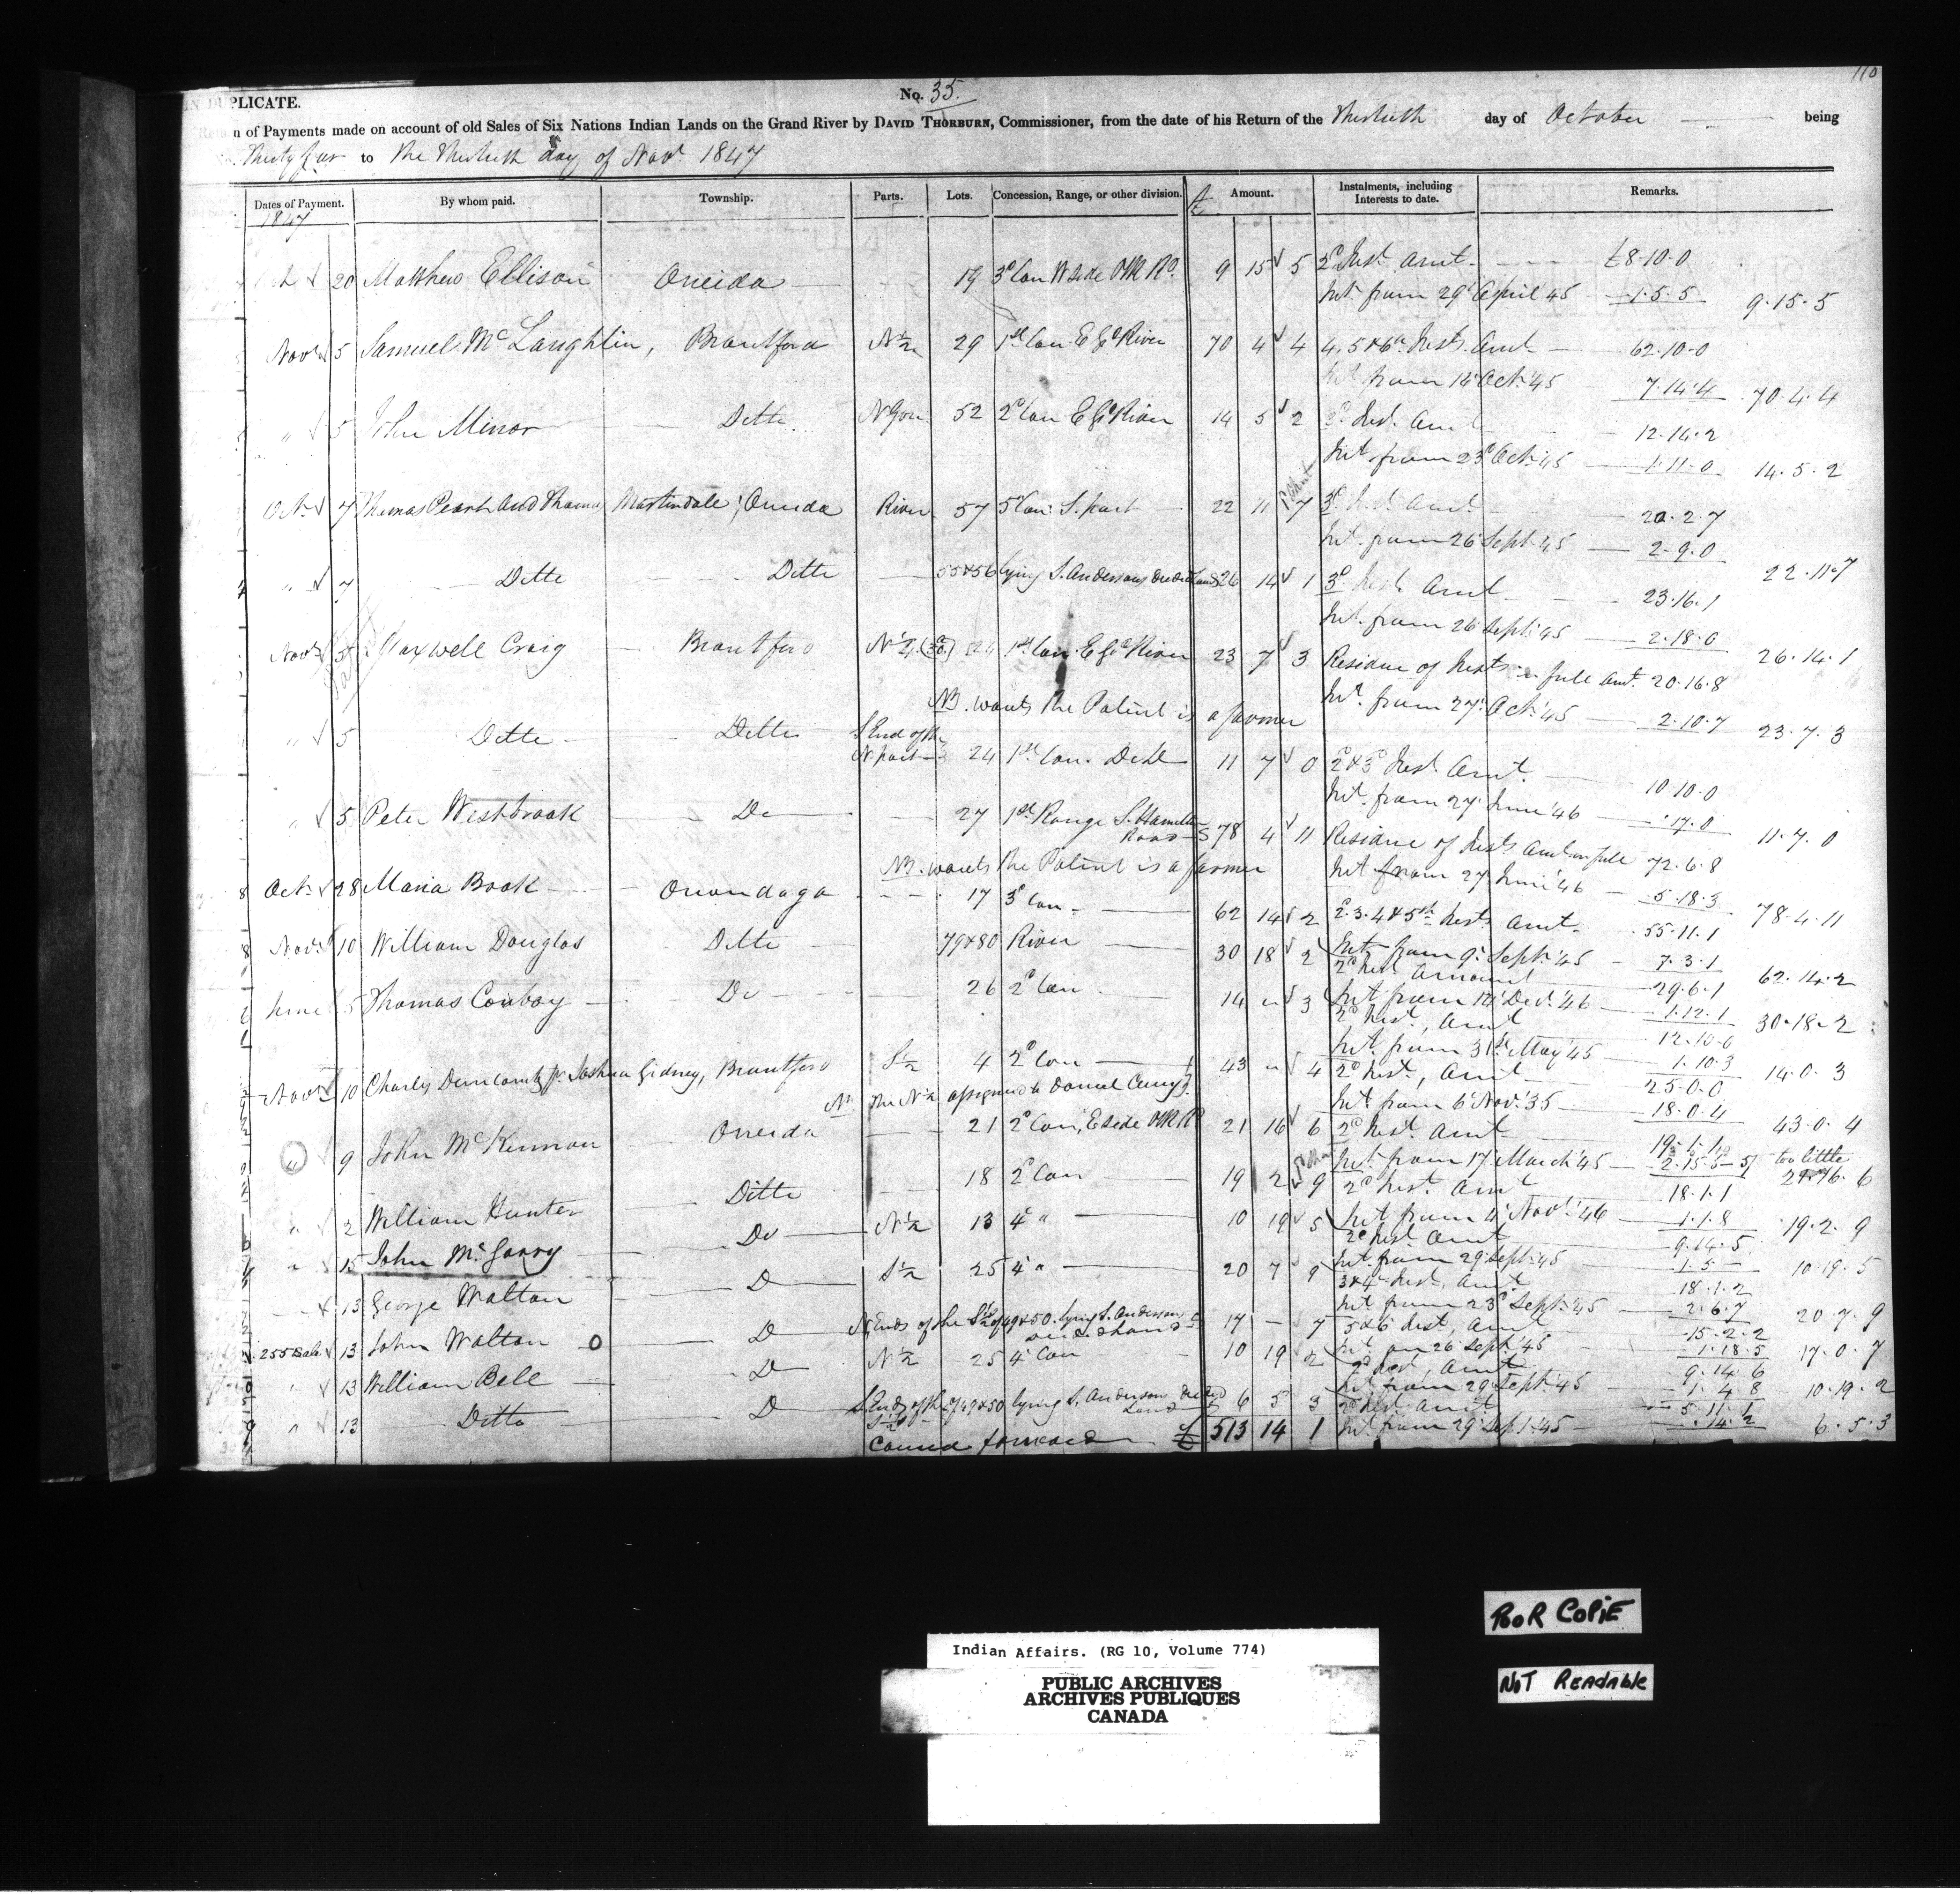 110
IN DUPLICATE.
No. 35.
Return of Payments made on account of old Sales of Six Nations Indian Lands on the Grand River by DAVID THORBURN, Commissioner, from the date of his Return of the Thirtieth day of October being
to the Thirtieth day of Novr. 1847
Dates of Payment. By whom paid. Township. Parts. Lots. Concession, Range, or other division. £ Amount. Instalments, including Interests to date. Remarks.
1847
20 Matthew Ellison Oneida 19 3d Con W side P Rd. 9 15 5 2d Inst. Amt. £8.10.0
Int. from 29 April '45 1.5.5 9.15.5
Novr. 5 Samuel McLaughlin, Brantford N 1/2 29 1st Con E Gd River 70 4 4 4, 5 & 6th Insts. Amt. 62.10.0
Int. from 14 Oct. '45 7.14.4 70.4.4
" 5 John Minor Ditto 52 2d Con E Gd River 14 5 2 Inst. Amt 12.14.2
Int. from 23d Oct. '45 1.11.0 14.5.2
Oct. 7 Thomas and Thomas Martindale, Oneida River 57 5 Con. S. part 22 11 7 3d Inst. Amt. 20.2.7
Int. from 26 Sept. 45 2.9.0 22.11.7
" 7 Ditto Ditto 55 & 56 lying S. Andersons Land 26 14 1 3d Inst. Amt 23.16.1
Int. from 26 Sept. 45 2.18.0 26.14.1
Novr. 5 Maxwell Craig Brantford 24 1st Con. E Gd River 23 7 3 Residue of Insts in full Amt. 20.16.8
NB. wants the Patent is a farmer Int. from 27 Oct. '45 2.10.7 23.7.3
" 5 Ditto Ditto S End of the N. part 24 1st Con. Ditto 11 7 0 2d & 3d Inst. Amt. 10.10.0
Int. from 27 June '46 17.0 11.7.0
" 5 Peter Westbrook Do 27 1st Range S. Hamilton Road 78 4 11 Residue of Insts Amt in full 72.6.8
NB. wants the Patent is a farmer Int from 27 June '46 5.18.3 78.4.11
Oct. 28 Maria Book Onondaga 17 3d Con. 62 14 2 2.3.4 & 5th Insts Amt. 55.11.1
Int. from 9 Sept. '45 7.3.1 62.14.2
Novr. 10 William Douglas Ditto 79 & 80 River 30 18 2 2d Inst. Amount 29.6.1
Int from Decr. '46 1.12.1 30.18.2
June 5 Thomas Conboy Do 26 2d Con 14 " 3 2d Inst., Amt 12.10.0
Int. from 31st May '45 1.10.3 14.0.3
Novr. 10 Charles Duncombe pr. Joshua Gidney, Brantford S 1/2 4 2d Con 43 " 4 2d Inst., Amt 25.0.0
The N 1/2 assigned to Daniel Int. from 6 Nov. '35 18.0.4 43.0.4
" 9 John McKinnon Oneida 21 2d Con, E side P Rd 21 16 6 2d Inst. Amt 19.1.1
Int. from 17 March '45 2.15.5 too little 6
" 2 William Hunter Ditto 18 2d Con 19 2 9 2d Inst. Amt 18.1.1
Int from Novr. '46 1.1.8 19.2.9
" 15 John McGarry Do N 1/2 13 4 " 10 19 5 2d Inst. Amt 9.14.5
Int. from 29 Sept. '45 1.5 10.19.5
13 George Walton D S 1/2 25 4 " 20 7 9 3 & 4 Inst. Amt 18.1.2
Int from 23d Sept. '45 2.6.7 20.7.9
13 John Walton D N Ends of the S 1/2 of 49 & 50 lying S. Anderson 17 – 7 5 & 6 Inst, Amt 15.2.2
Int. on 26 Sept. '45 1.18.5 17.0.7
" 13 William Bell D N 1/2 25 4 Con 10 19 2 2d Inst, Amt 9.14.6
Int from 29 Sept. '45 1.4.8 10.19.2
" 13 Ditto D S. Ends of the of 49 & 50 lying S. Anderson Land 6 5 3 2d Inst. Amt 5.11.1
Carried forward £ 513 14 1 Int. from 29 Sept. '45 .14.2 6.5.3
POOR COPIE
NOT READABLE
Indian Affairs. (RG 10, Volume 774)
PUBLIC ARCHIVES
ARCHIVES PUBLIQUES
CANADA